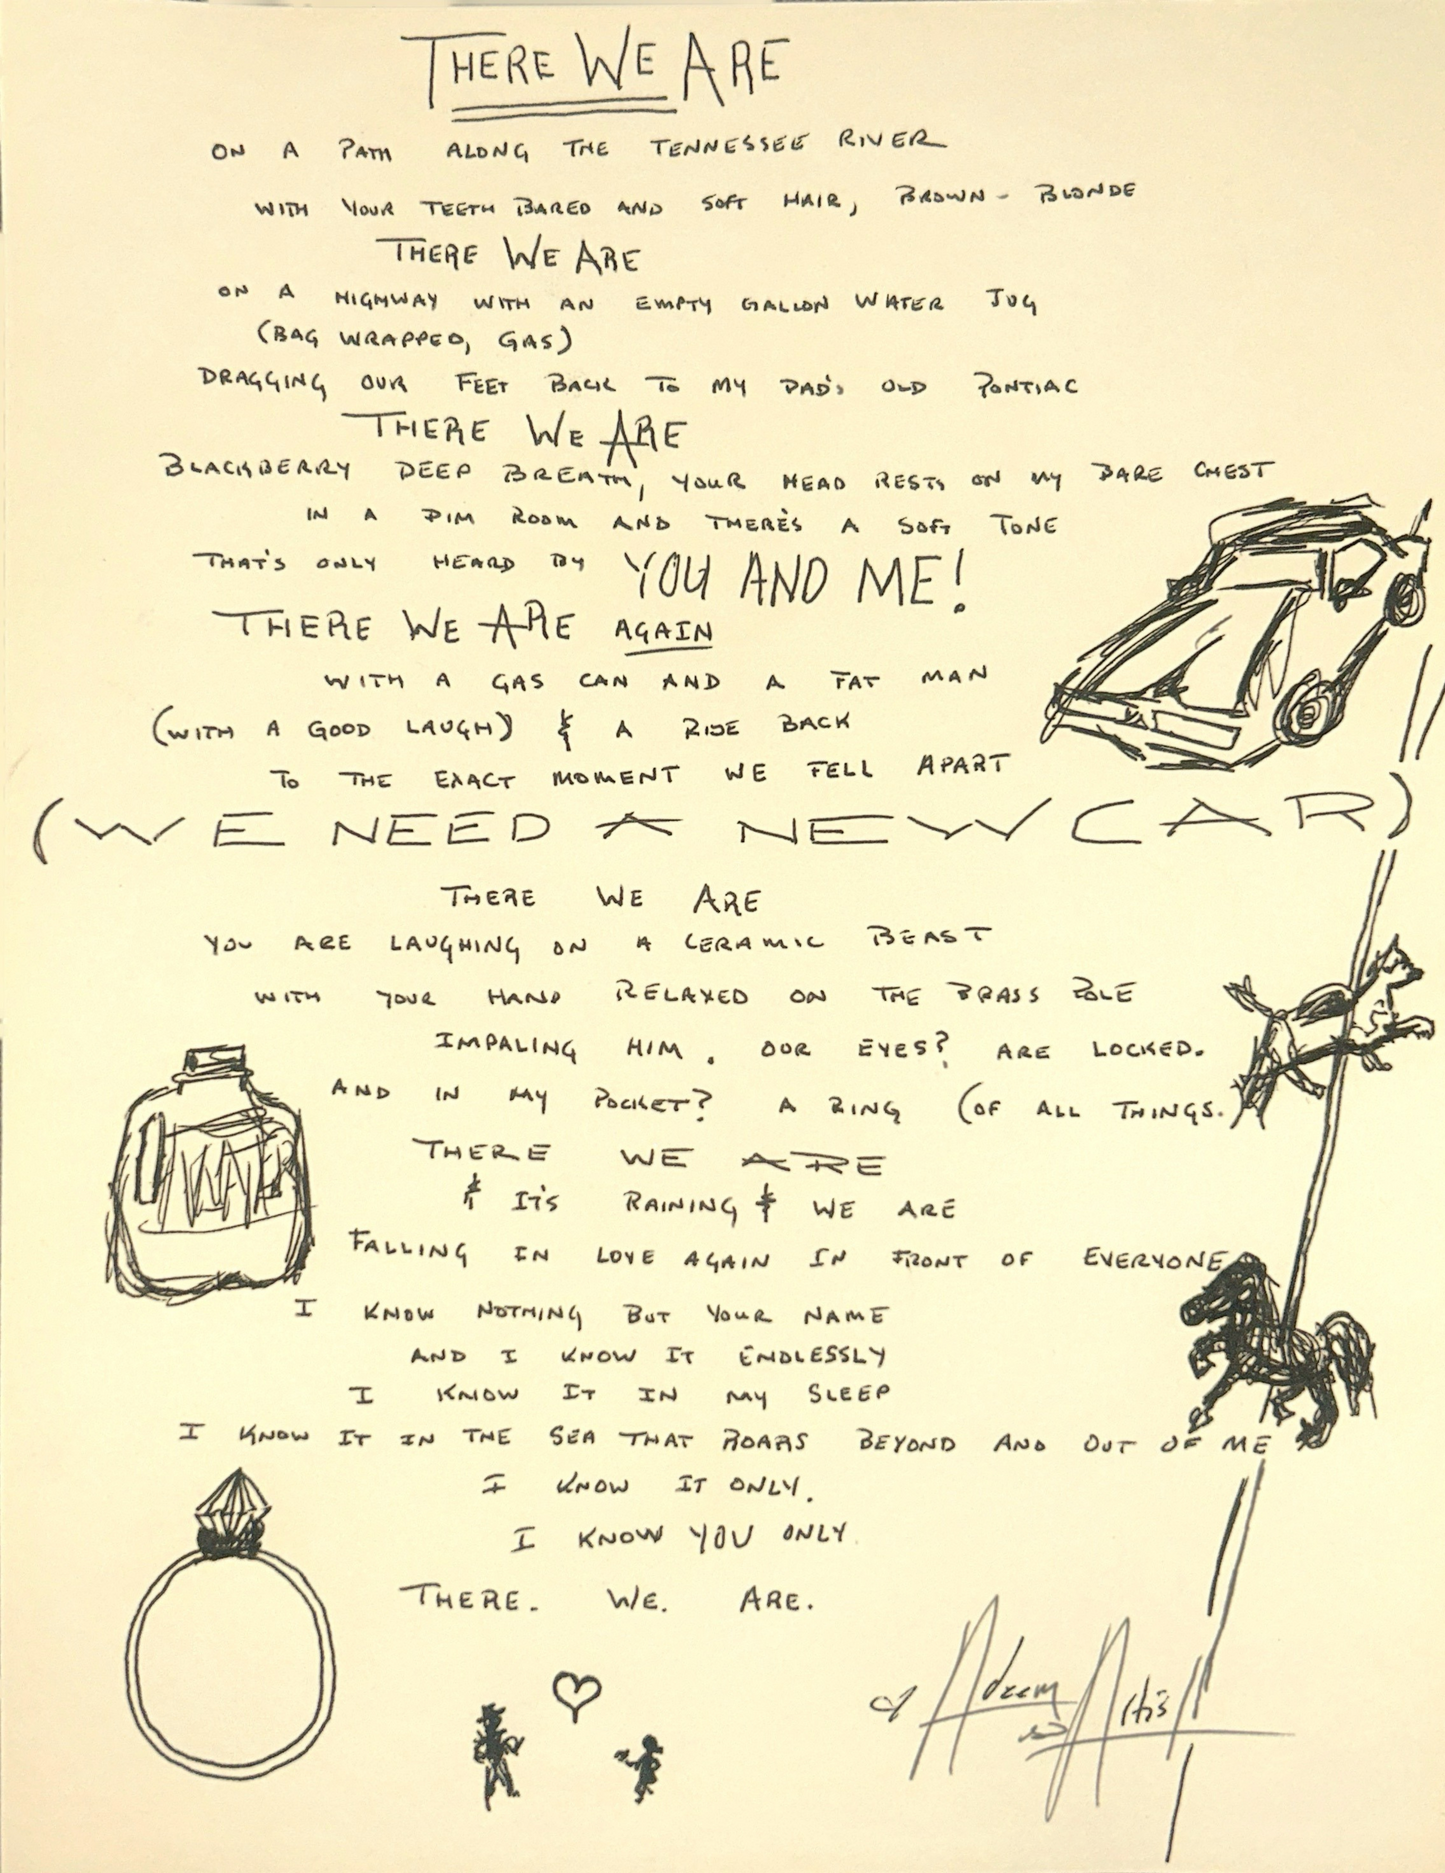 THERE WE ARE
ON A PATH ALONG THE TENNESSEE RIVER
WITH YOUR TEETH BARED AND SOFT HAIR, BROWN-BLONDE
THERE WE ARE
ON A HIGHWAY WITH AN EMPTY GALLON WATER JUG
(BAG WRAPPED, GAS)
DRAGGING OUR FEET BACK TO MY DAD'S OLD PONTIAC
THERE WE ARE
BLACKBERRY DEEP BREATH, YOUR HEAD RESTS ON MY BARE CHEST
IN A DIM ROOM AND THERE'S A SOFT TONE
THAT'S ONLY HEARD BY YOU AND ME!
THERE WE ARE AGAIN
WITH A GAS CAN AND A FAT MAN
(WITH A GOOD LAUGH) & A RIDE BACK
TO THE EXACT MOMENT WE FELL APART
(WE NEED A NEW CAR)
THERE WE ARE
YOU ARE LAUGHING ON A CERAMIC BEAST
WITH YOUR HAND RELAXED ON THE BRASS POLE
IMPALING HIM. OUR EYES? ARE LOCKED.
AND IN MY POCKET? A RING (OF ALL THINGS.
THERE WE ARE
& IT'S RAINING & WE ARE
FALLING IN LOVE AGAIN IN FRONT OF EVERYONE
I KNOW NOTHING BUT YOUR NAME
AND I KNOW IT ENDLESSLY
I KNOW IT IN MY SLEEP
I KNOW IT IN THE SEA THAT ROARS BEYOND AND OUT OF ME
I KNOW IT ONLY.
I KNOW YOU ONLY
THERE. WE. ARE.
WATER
Adeem Artis